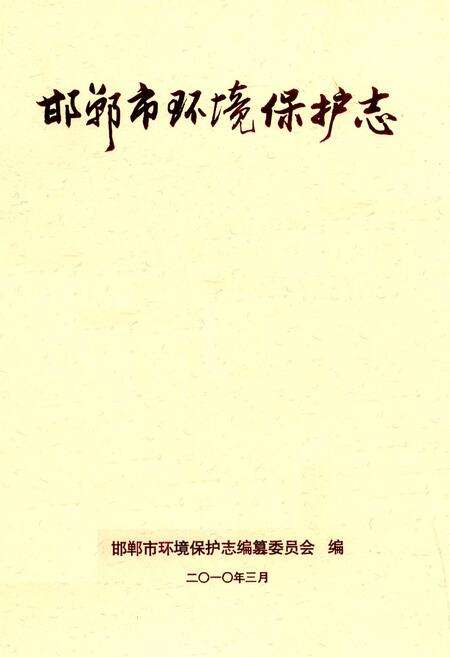 邯郸市环境保护志
邯郸市环境保护志编篡委员会 编
二〇一〇年三月